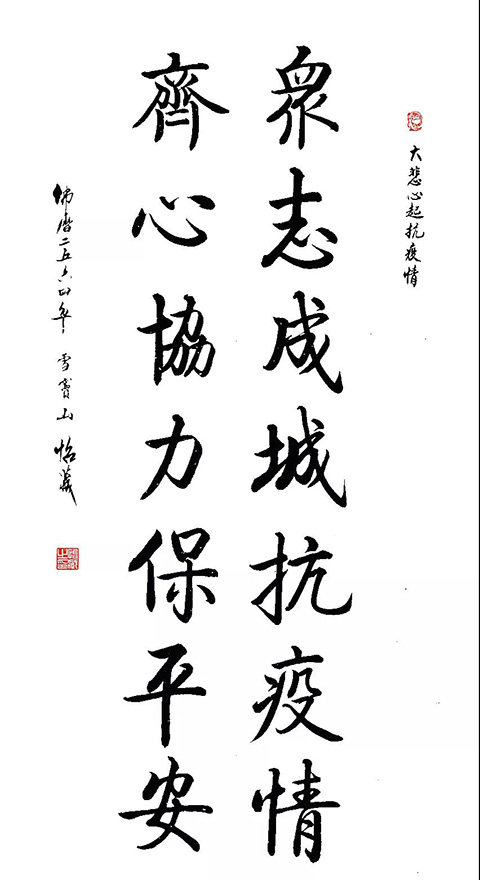 大悲心起抗疫情
眾志成城抗疫情
齊心協力保平安
佛曆二五六四年 雪竇山 怡藏